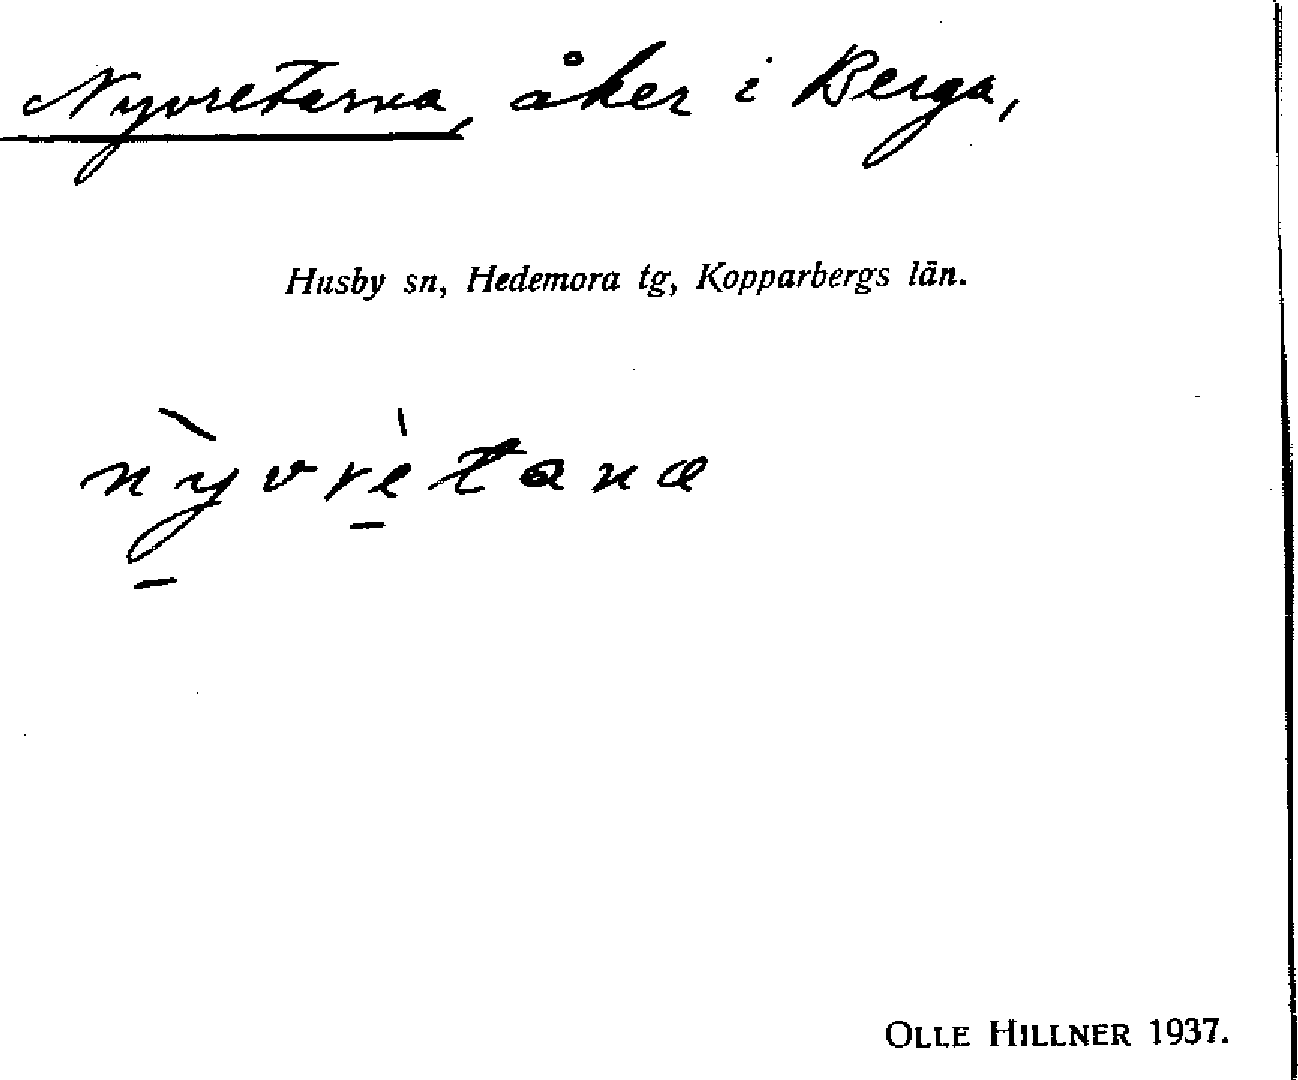 Nyvretarna, åker i Berga,
Husby sn, Hedemora tg, Kopparbergs län.
nỳ̠vrè̠tana
OLLE HILLNER 1937.